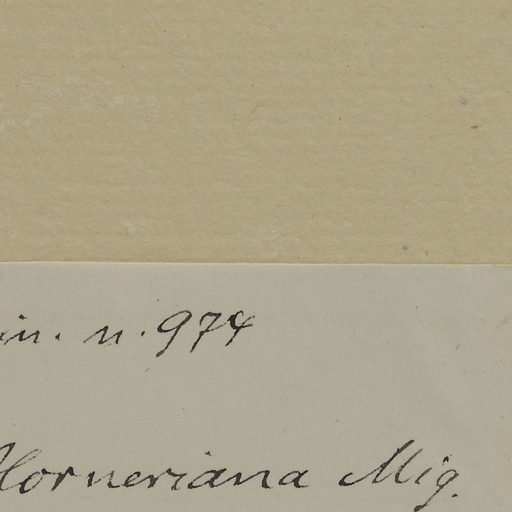 in. n. 974
Horneriana Miq.